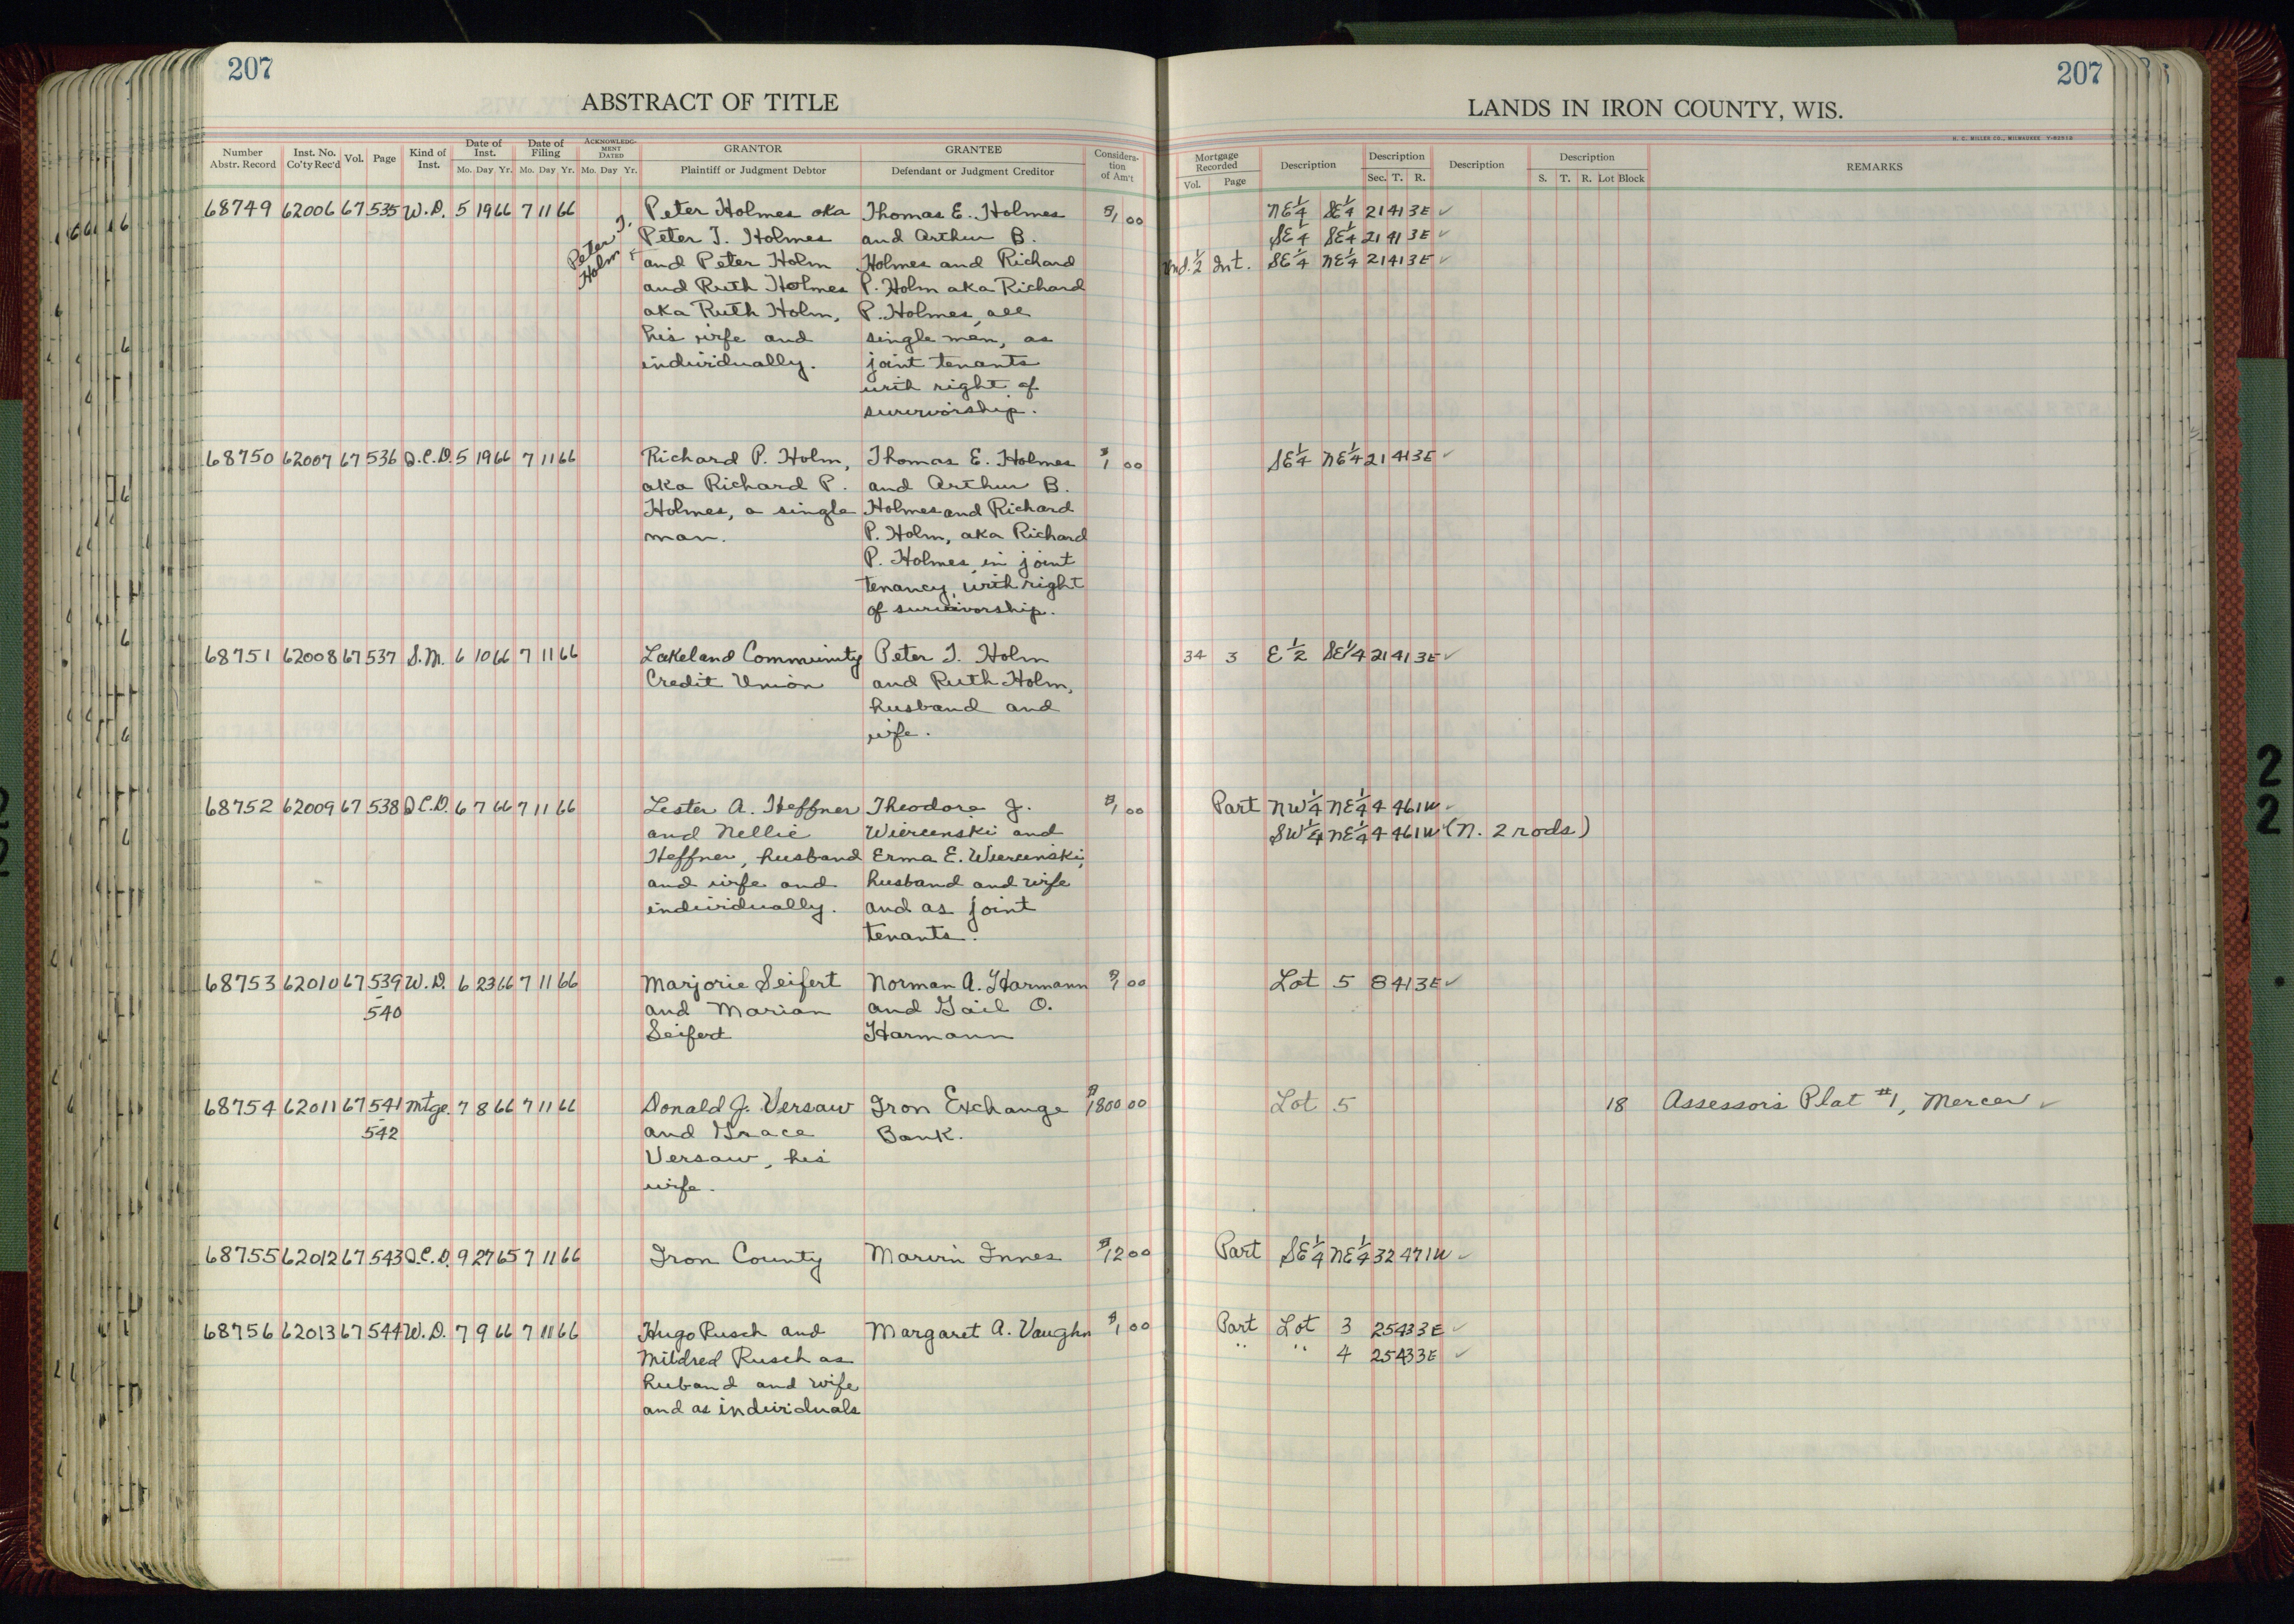 207
ABSTRACT OF TITLE
Number Abstr. Record Inst. No. Co'ty Rec'd Vol. Page Kind of Inst. Date of Inst. Mo. Day Yr. Date of Filing Mo. Day Yr. ACKNOWLEDGMENT DATED Mo. Day Yr. GRANTOR Plaintiff or Judgment Debtor GRANTEE Defendant or Judgment Creditor Consideration of Am't
68749 62006 67 535 W.D. 5 19 66 7 11 66 Peter Holmes aka Thomas E. Holmes $1 00
Peter T. Holmes and Arthur B.
Peter T. Holm &
and Peter Holm Holmes and Richard
and Ruth Holmes P. Holm aka Richard
aka Ruth Holm, P. Holmes, all
his wife and single men, as
individually. joint tenants
with right of
survivorship.
68750 62007 67 536 Q.C.D. 5 19 66 7 11 66 Richard P. Holm, Thomas E. Holmes $1 00
aka Richard P. and Arthur B.
Holmes, a single Holmes and Richard
man. P. Holm, aka Richard
P. Holmes, in joint
tenancy, with right
of survivorship.
68751 62008 67 537 S.M. 6 10 66 7 11 66 Lakeland Community Peter T. Holm
Credit Union and Ruth Holm,
husband and
wife.
68752 62009 67 538 Q.C.D. 6 7 66 7 11 66 Lester A. Heffner Theodore J. $1 00
and Nellie Wiercinski and
Heffner, husband Erma E. Wiercinski,
and wife and husband and wife
individually. and as joint
tenants.
68753 62010 67 539 W.D. 6 23 66 7 11 66 Marjorie Seifert Norman A. Harmann $1 00
- 540 and Marian and Gail O.
Seifert Harmann
68754 62011 67 541 Mtge. 7 8 66 7 11 66 Donald J. Versaw Iron Exchange $1800 00
- 542 and Grace Bank.
Versaw, his
wife.
68755 62012 67 543 Q.C.D. 9 27 65 7 11 66 Iron County Marvin Innes $12 00
68756 62013 67 544 W.D. 7 9 66 7 11 66 Hugo Rusch and Margaret A. Vaughn $1 00
Mildred Rusch as
huband and wife
and as individuals
207
LANDS IN IRON COUNTY, WIS.
H. C. MILLER CO., MILWAUKEE
Mortgage Recorded Vol. Page Description Description Sec. T. R. Description Description S. T. R. Lot Block REMARKS
NE¼ SE¼ 21 41 3E ✓
SE¼ SE¼ 21 41 3E ✓
Und. ½ Int. SE¼ NE¼ 21 41 3E ✓
SE¼ NE¼ 21 41 3E ✓
34 3 E½ SE¼ 21 41 3E ✓
Part NW¼ NE¼ 4 46 1W ✓
SW¼ NE¼ 4 46 1W ✓ (N. 2 rods)
Lot 5 8 41 3E ✓
Lot 5 18 Assessor's Plat #1, Mercer ✓
Part SE¼ NE¼ 32 47 1W ✓
Part Lot 3 25 43 3E ✓
" " 4 25 43 3E ✓